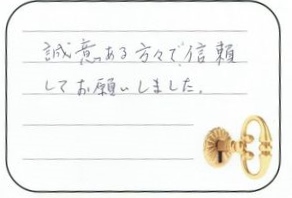 誠意ある方々で信頼
してお願いしました。